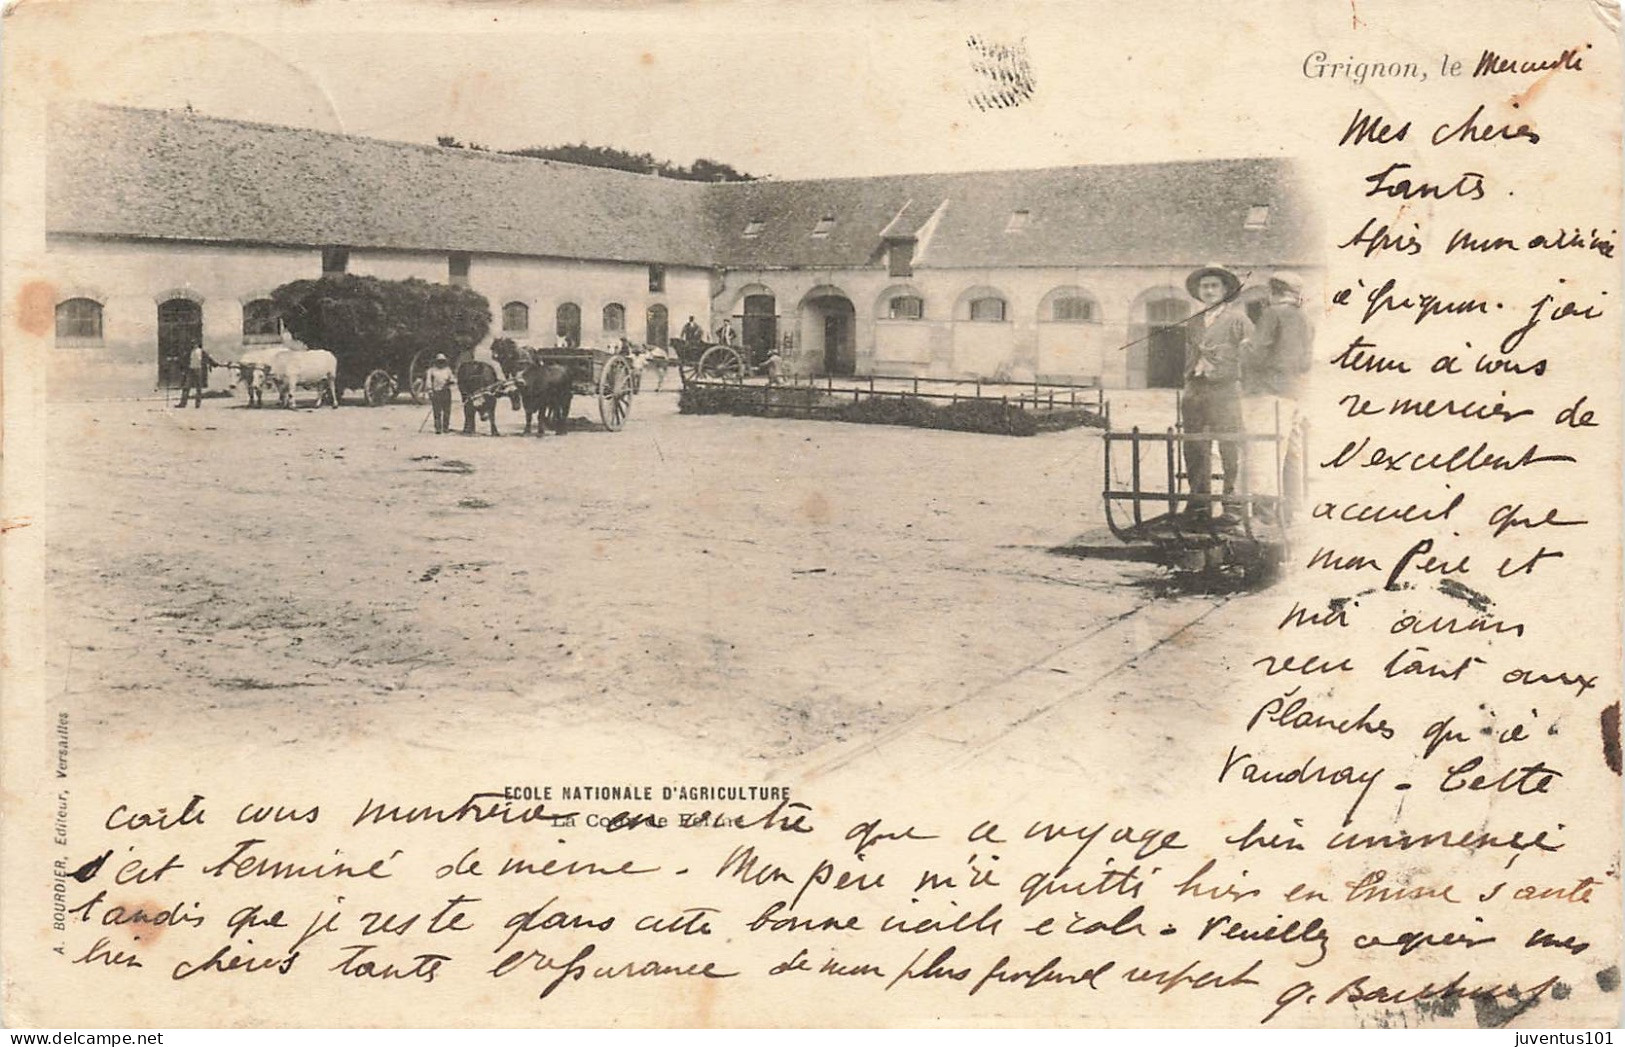 Grignon, le Mercredi
Mes chères
Tants.
Après mon arrivée
à Grignon. j'ai
tenu à vous
remercier de
l'excellent
accueil que
mon Père et
moi avons
reçu tant aux
Planches qu'à
Vaudray - Cette
ECOLE NATIONALE D'AGRICULTURE
La Cour de Ferme
carte vous montrera en outre que ce voyage bien commencé
s'est terminé de même. Mon père m'a quitté hier en bonne santé
tandis que je reste dans cette bonne vieille école. Veuillez agréer mes
bien chères tants l'assurance de mon plus profond respect G.
A. BOURDIER, Editeur, Versailles
juventus101